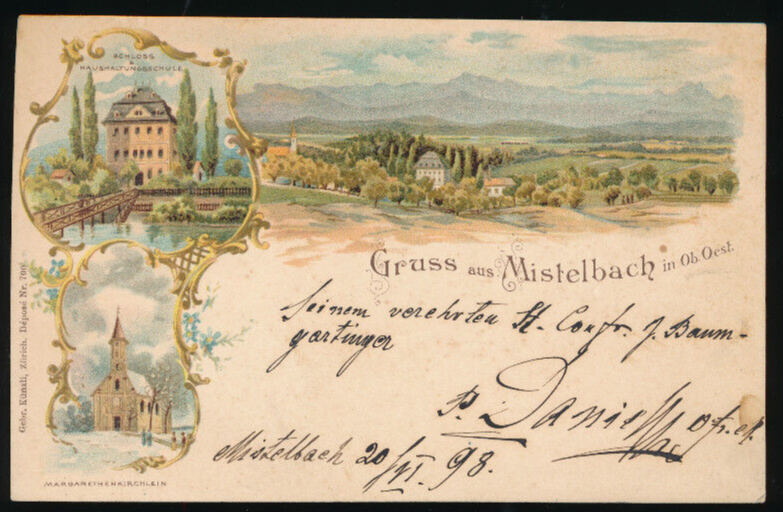 SCHLOSS
&
HAUSHALTUNGSSCHULE
Gruss aus Mistelbach in Ob. Oest.
Seinem verehrten H. Confr. J. Baum-
gartinger
P. Daniel
Mistelbach 20/VI 98.
MARGARETHENKIRCHLEIN
Gebr. Künzli, Zürich. Déposé Nr. 700